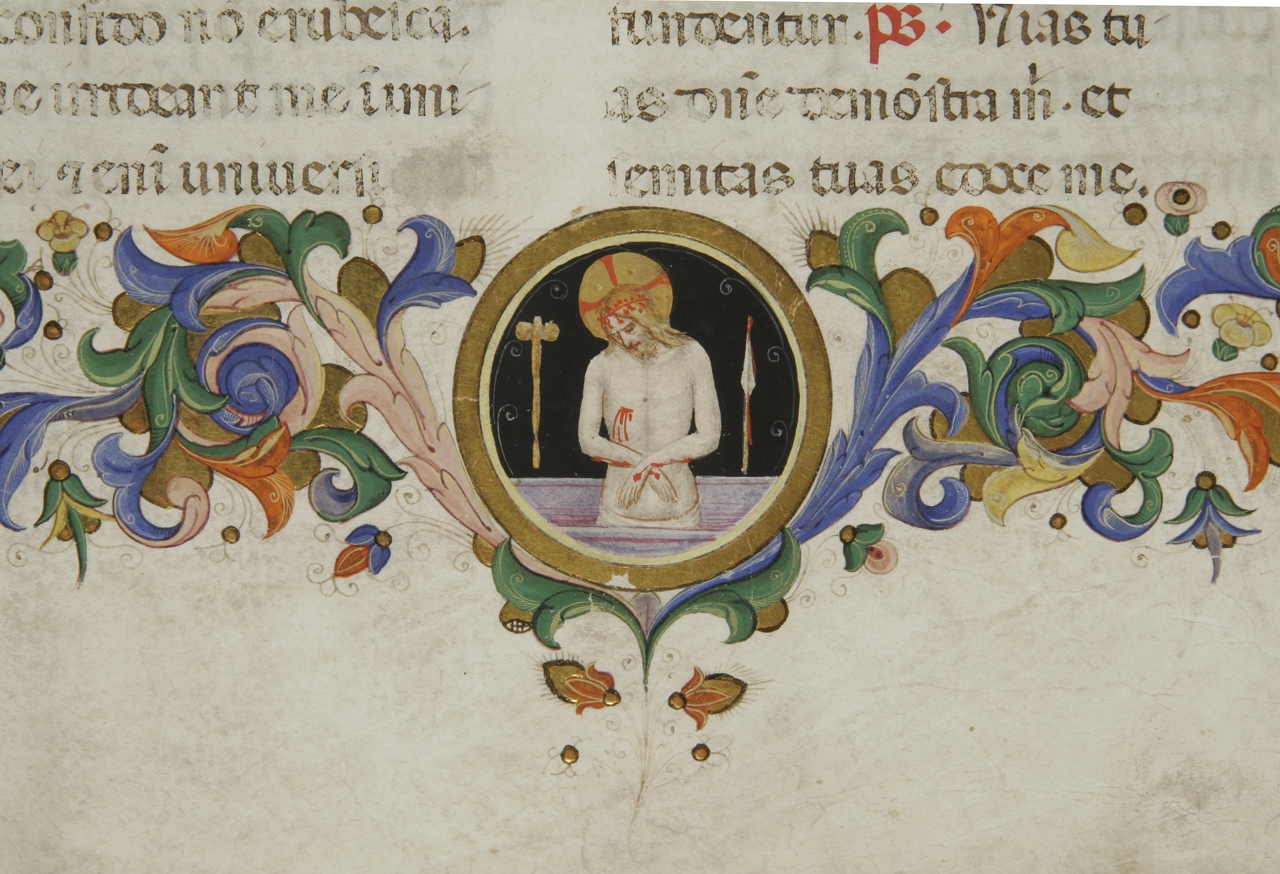 confido nō erubescā.
ue irrideant me īimi
ei ⁊ enī uniuersi
fundentur. ps. Uias tu
as dn̄e demōstra m̄. et
semitas tuas edoce me.